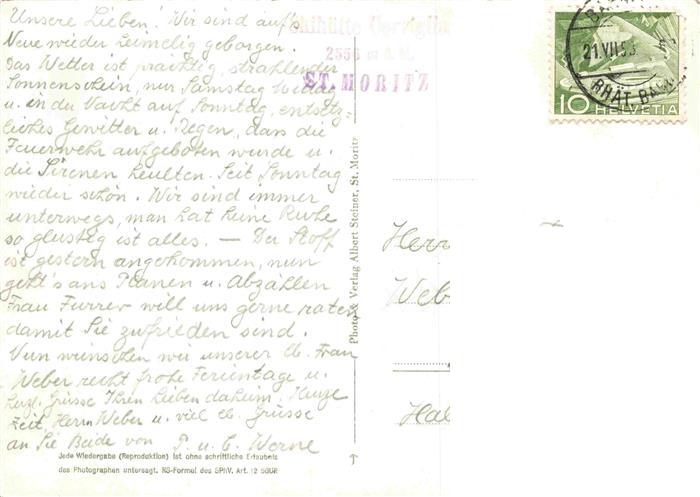 Unsere Lieben! Wir sind auf's
Neue wieder heimelig geborgen.
Das Wetter ist prächtig, strahlender
Sonnenschein, nur Samstag
u. in der Nacht auf Sonntag, entsetz-
liches Gewitter u. Regen, dass die
Feuerwehr aufgeboten wurde u.
die Sirenen heulten. Seit Sonntag
wieder schön. Wir sind immer
unterwegs, man hat keine Ruhe
so glustig ist alles. — Der Stoff
ist gestern angekommen, nun
geht's ans Planen u. Abzählen
Frau Furrer will uns gerne raten
damit Sie zufrieden sind.
Nun wünschen wir unserer lb. Frau
Weber recht frohe Ferientage u.
herzl. Grüsse Ihren Lieben daheim.
Zeit, Herrn Weber u. viel lb. Grüsse
an Sie Beide von P. u. C. Werne
Jede Wiedergabe (Reproduktion) ist ohne schriftliche Erlaubnis
des Photographen untersagt. RS-Formel des SPhV. Art. 12 SGUR
Photo & Verlag Albert Steiner, St. Moritz
Skihütte
2556 m ü. M.
ST. MORITZ
21.VII.53
RHÄT. BAHN
10 HELVETIA
Herr
Web
Hal